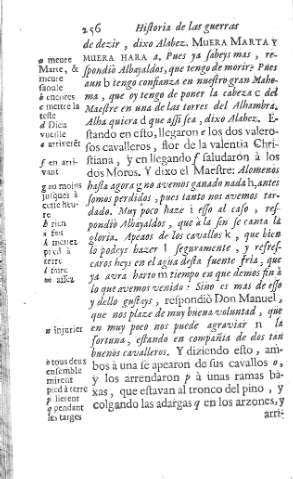 256 Historia de las guerras
de dezir, dixo Alabez. MUERA MARTA Y
MUERA HARA a. Pues ya sabeys mas, res-
pondiò Albayaldos, que tengo de morir? Pues
aun b tengo confiança en nuestro gran Maho-
ma, que oy tengo de poner la cabeça c del
Maestre en una de las torres del Alhambra.
Alba quiera d que assi sea, dixo Alabez. E-
stando en esto, llegaron e los dos valero-
sos cavalleros, flor de la valentia Chri-
stiana, y en llegando f saludaron à los
dos Moros. Y dixo el Maestre: Alomenos
hasta agora g no avemos ganado nada h, antes
somos perdidos, pues tanto nos avemos tar-
dado. Muy poco haze i esso al caso, res-
pondiò Albayaldos, que à la fin se canta la
gloria. Apeaos de los cavallos k, que bien
lo podeys hazer l seguramente, y refres-
caros heys en el agua desta fuente fria, que
ya avra harto m tiempo en que demos fin à
lo que avemos venido: Sino es mas de esso
y dello gusteys, respondiò Don Manuel,
que nos plaze de muy buena voluntad, que
en muy poco nos puede agraviar n la
fortuna, estando en compañia de dos tan
buenos cavalleros. Y diziendo esto, am-
bos à una se apearon de sus cavallos o,
y los arrendaron p à unas ramas ba-
xas, que estavan al tronco del pino, y
colgando las adargas q en los arzones, y
arri-
a meure
Marte, &
meure
b encores
c mettre la
teste
d Dieu
vueille
e arriverẽt
f en arri-
vant
g au moins
jusques à
cette heu-
re
h rien
i fait
k mettez
pied à
terre
l faire
m assez
n injurier
o tous deux
ensemble
mirent
pied à terre
p lierent
q pendant
les targes